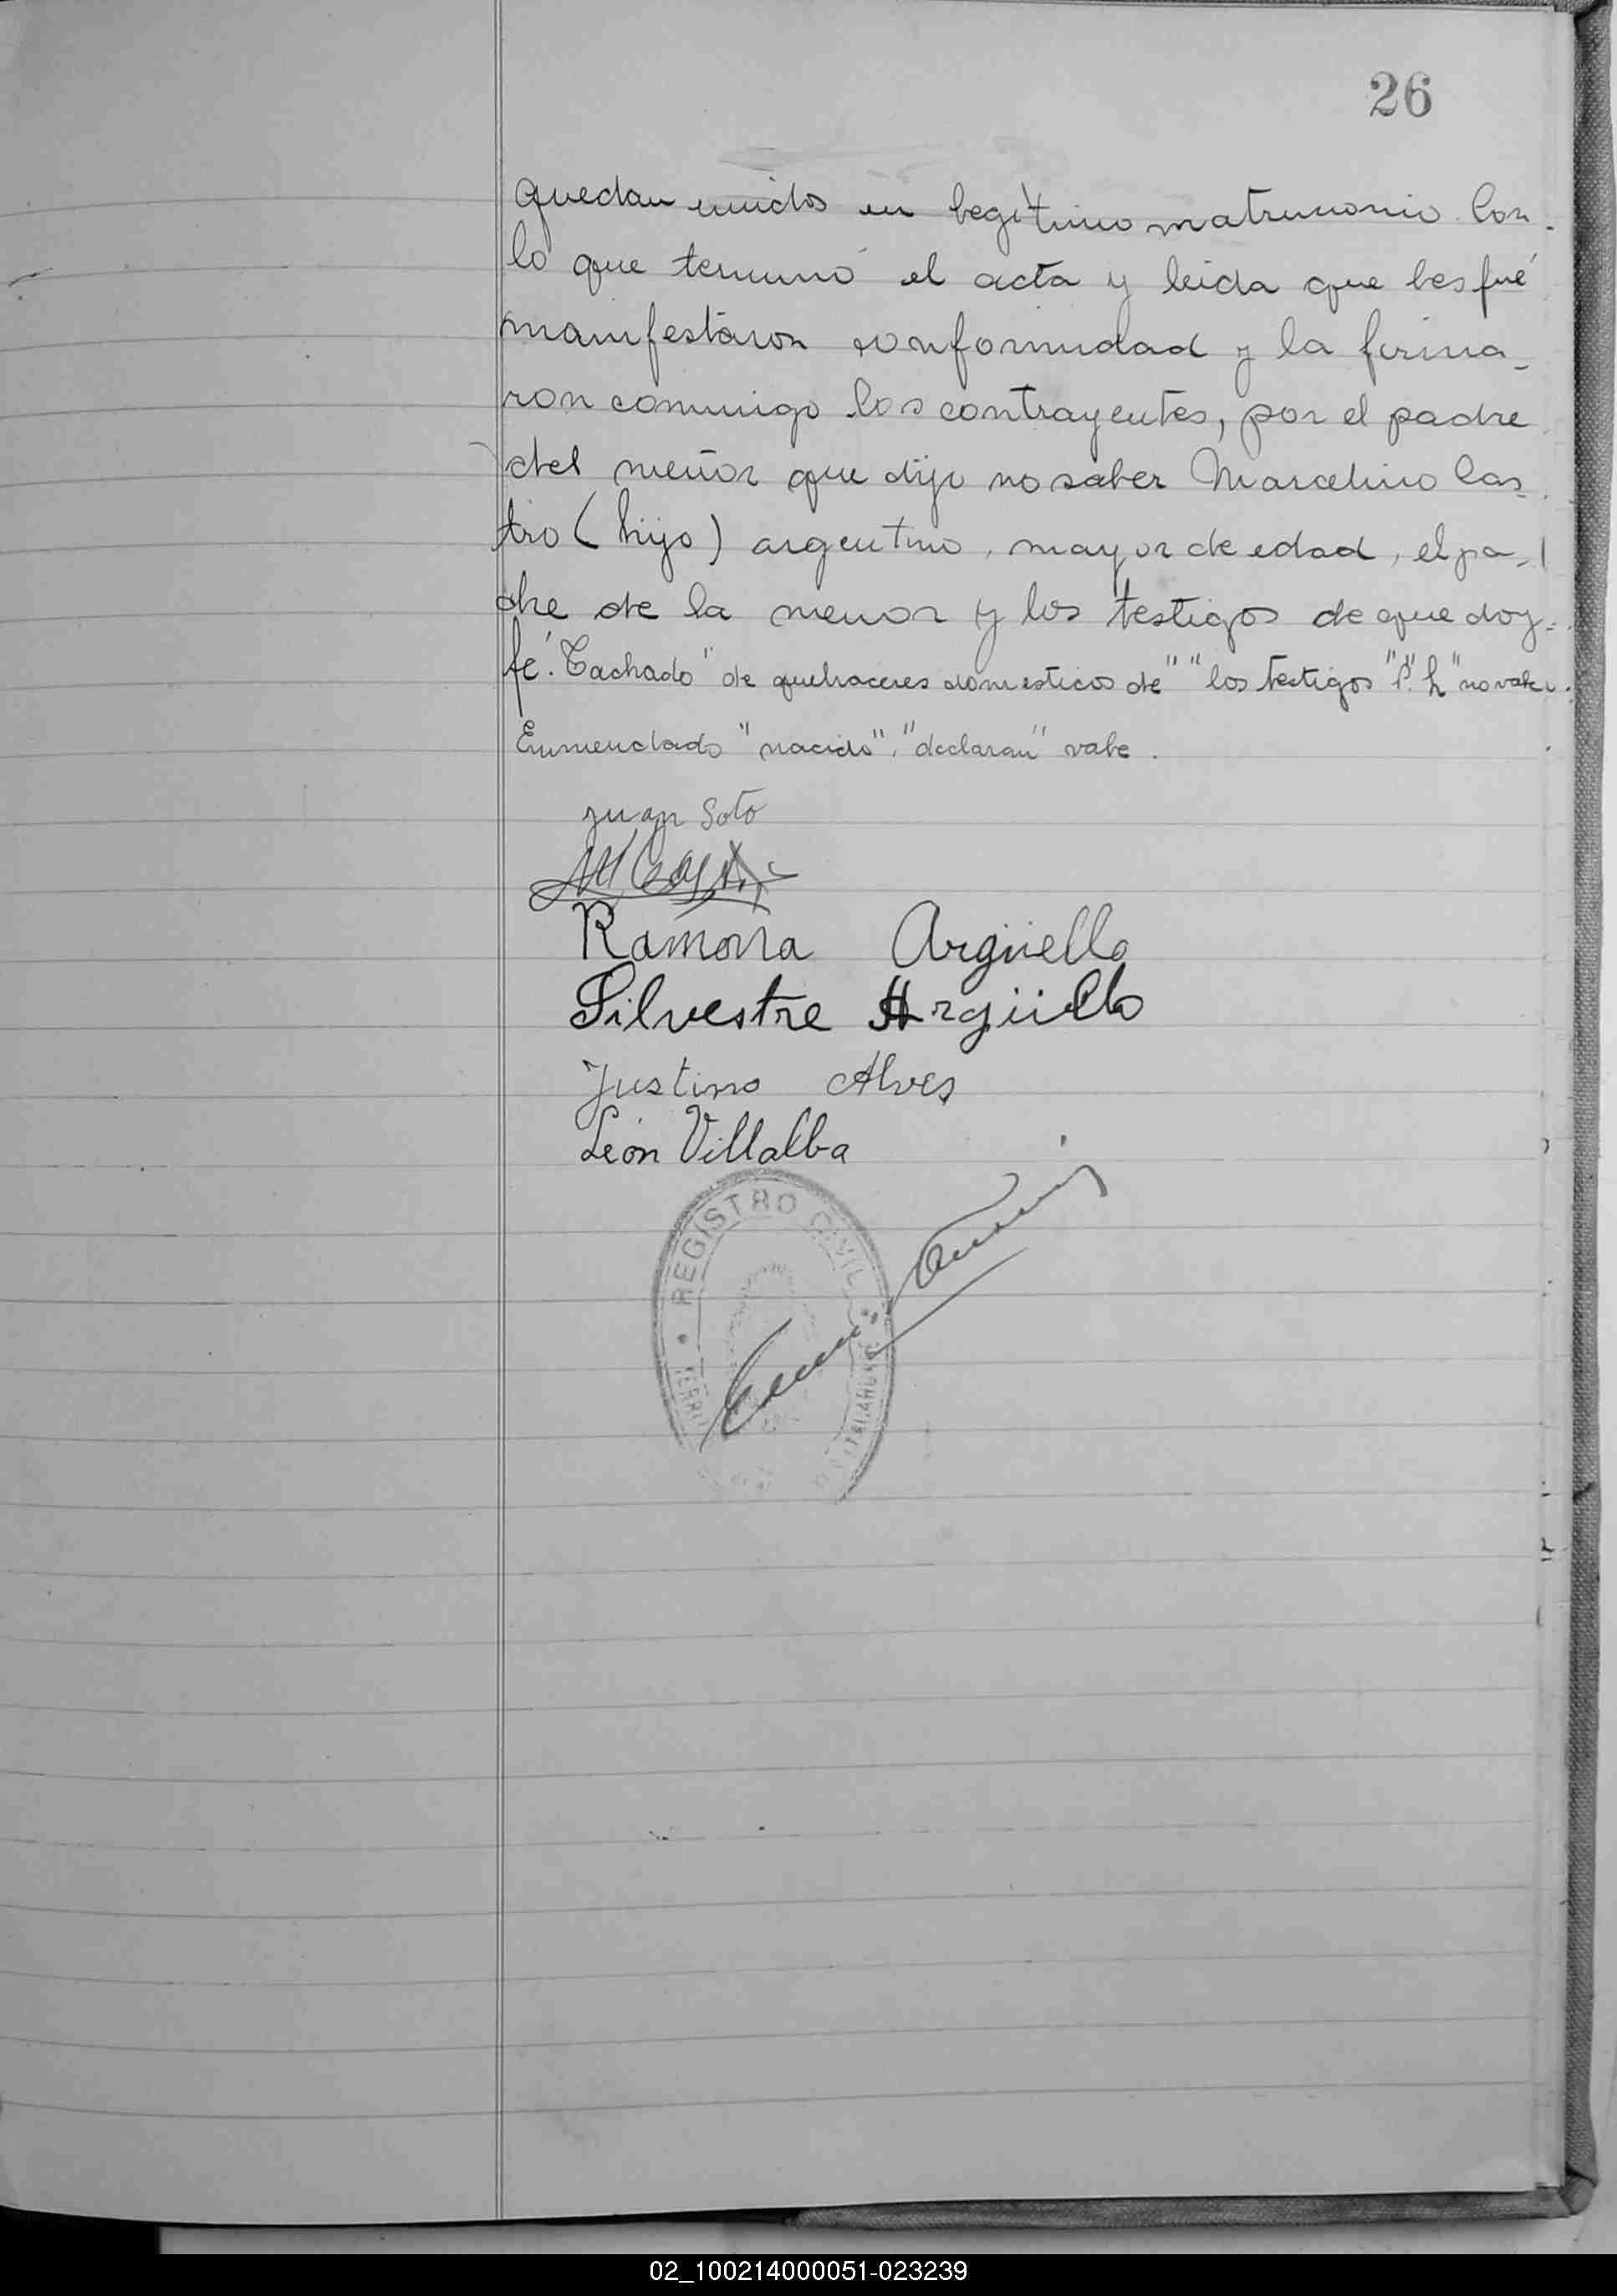 26
quedan unidos en legítimo matrimonio. Con
lo que terminó el acta y leida que les fué
manifestaron conformidad y la firma-
ron conmigo los contrayentes, por el padre
del menor que dijo no saber Marcelino Cas-
tro (hijo) argentino, mayor de edad, el pa-
dre de la menor y los testigos de que doy
fé. Tachado "de quehaceres domesticos de" "los testigos" "h" no vale.
Enmendado "nacido", "declaran" vale.
Juan Soto
Ramona Argüello
Silvestre Argüello
Justino Alves
León Villalba
REGISTRO CIVIL
02_100214000051-023239